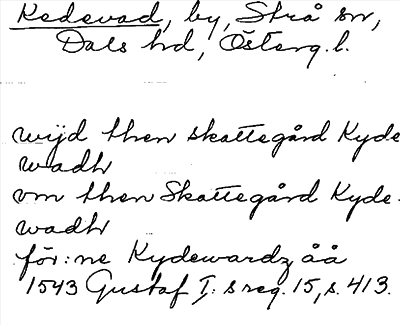 Kedevad, by, Strå sn,
Dals hd, Österg. l.
wijd then skattegård Kyde
wadh
vm then Skattegård Kyde-
wadh
för:ne Kydewardz åå
1543 Gustaf I:s reg. 15, s. 413.